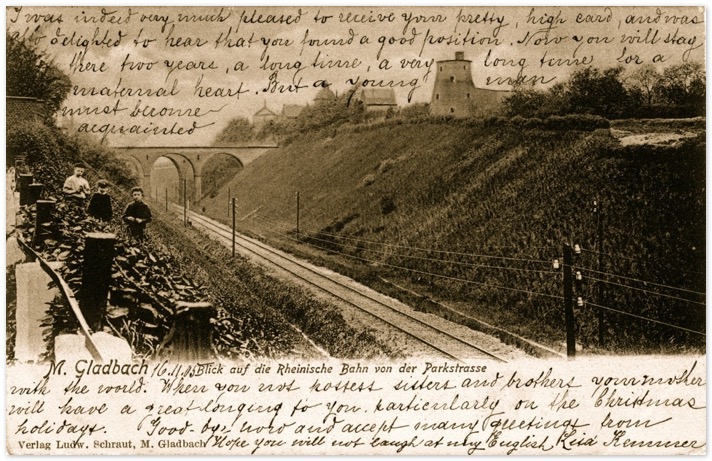 I was indeed very much pleased to receive your pretty, high card, and was
also delighted to hear that you found a good position. Now you will stay
there two years, a long time, a very long time for a
maternal heart. But a young man
must become
acquainted
M. Gladbach 16.11.05 Blick auf die Rheinische Bahn von der Parkstrasse
with the world. When you not possess sisters and brothers your mother
will have a great longing to you, particularly on the Christmas
holidays. Good-bye now and accept many greeting from
Verlag Ludw. Schraut, M. Gladbach Hope you will not laugh at my English